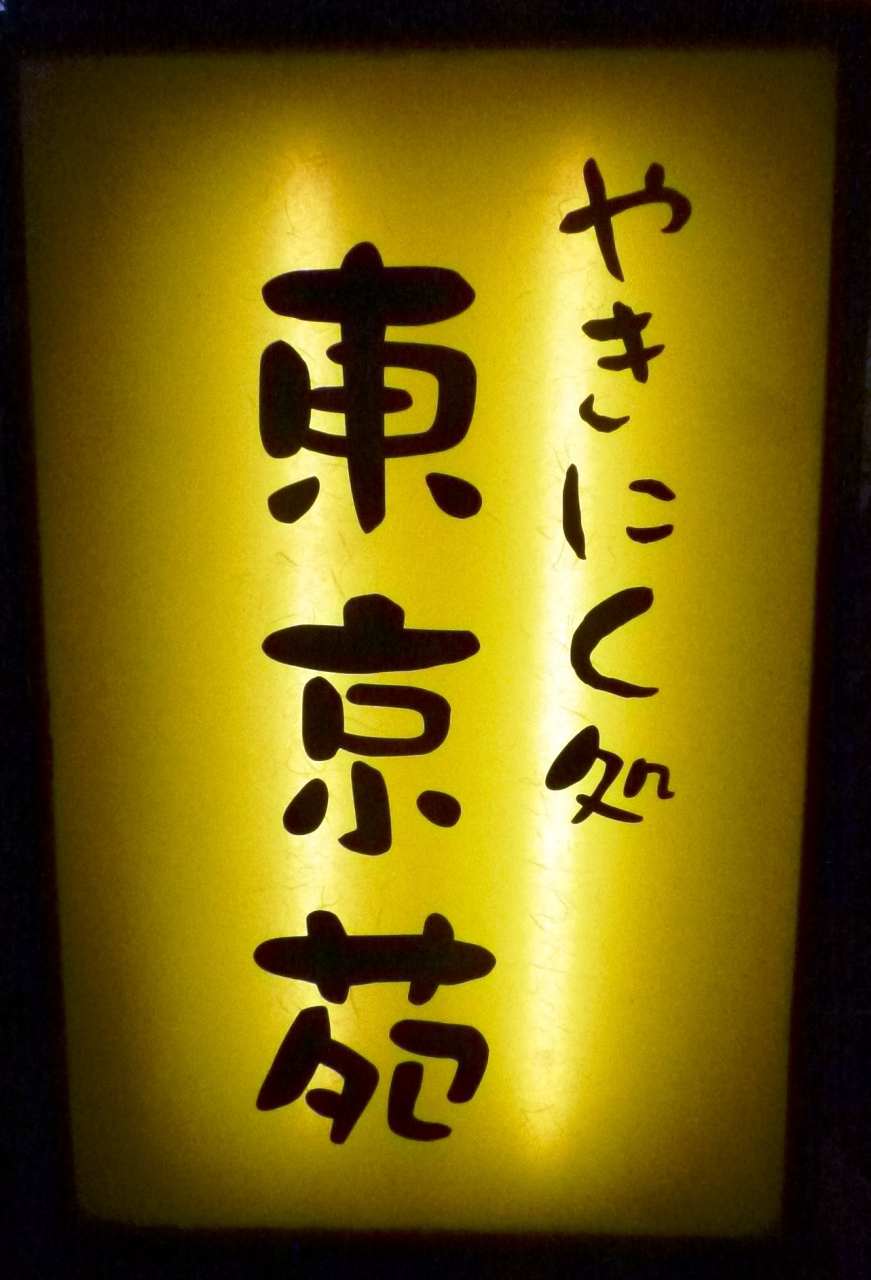 やきにく処
東京苑